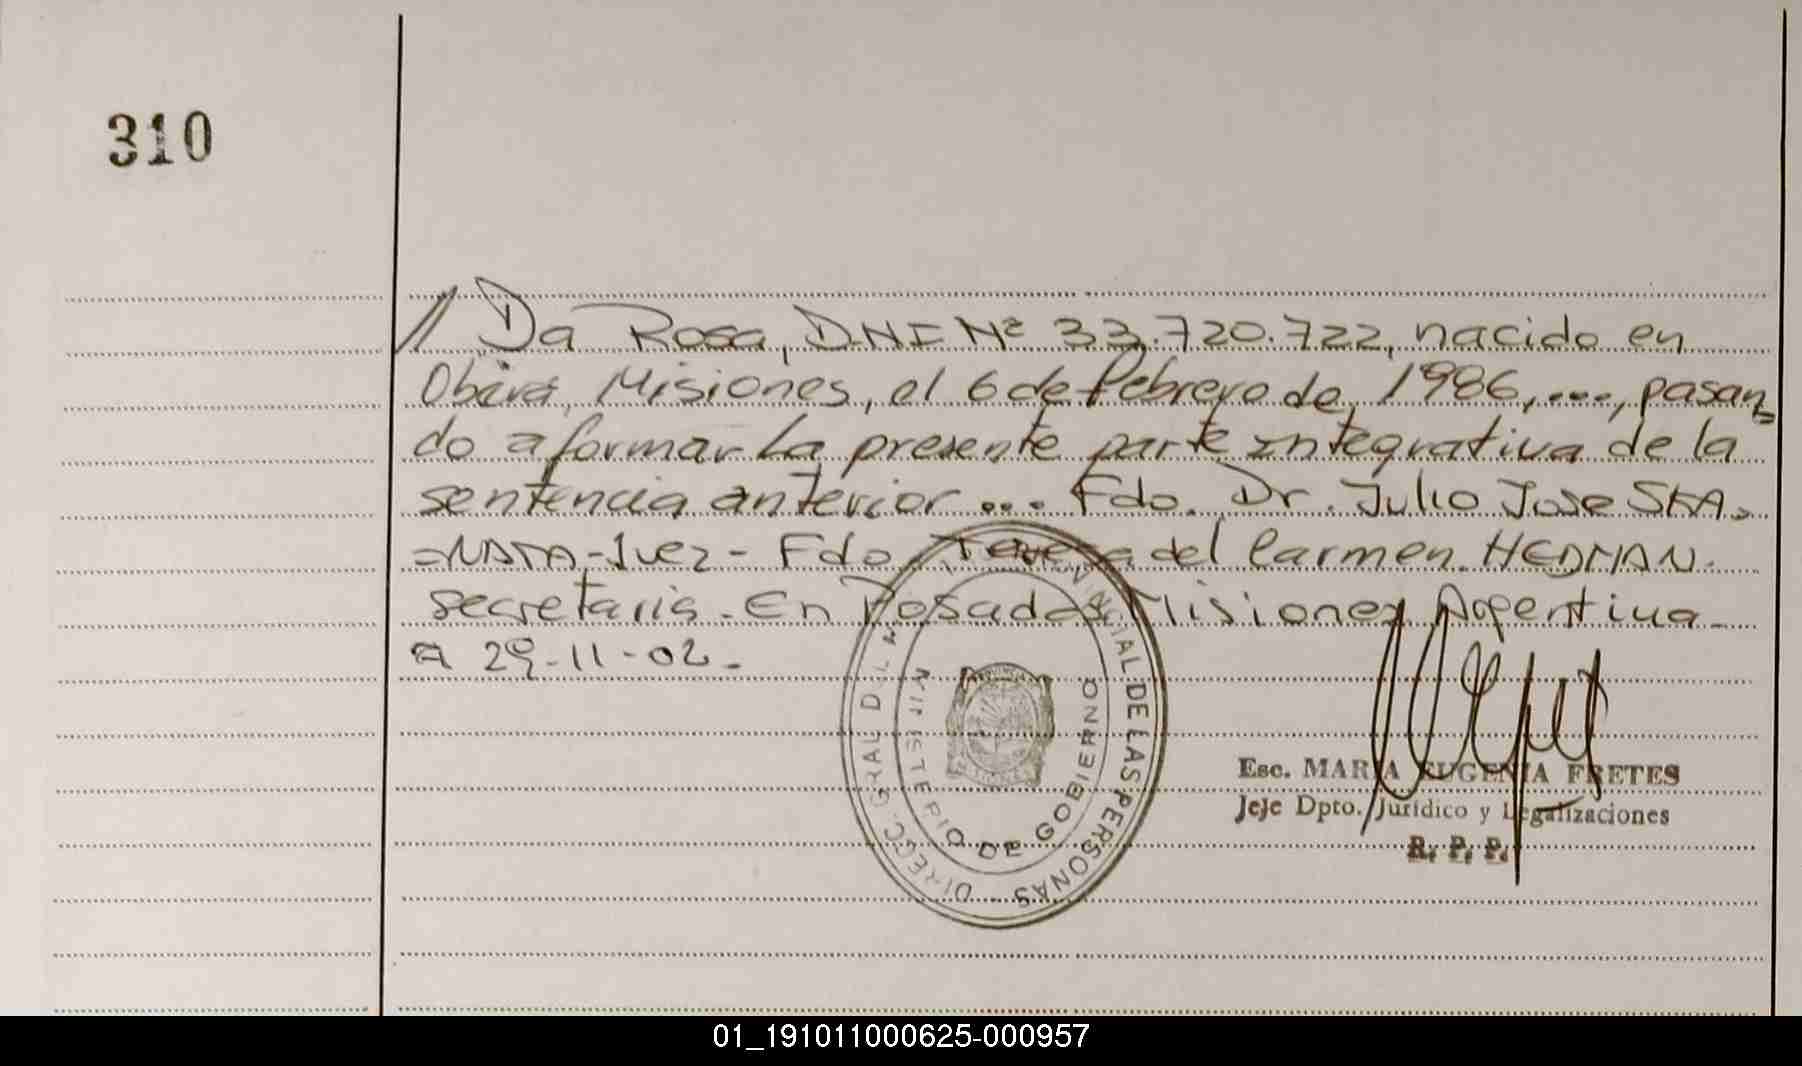 310
// Da Rosa, DNI Nº 33.720.722, nacido en
Oberá, Misiones, el 6 de febrero de 1986, ..., pasan
do a formar la presente parte integrativa de la
sentencia anterior ... Fdo. Dr. Julio Jose SKA-
=NATA-Juez- Fdo. Teresa del Carmen HEDMAN.
secretaria. En Posadas Misiones Argentina-
a 29-11-02.-
DIRECC. GRAL DE LAS PERSONAS
MINISTERIO DE GOBIERNO
Esc. MARIA EUGENIA FRETES
Jefe Dpto. Jurídico y Legalizaciones
R. P. P.
01_191011000625-000957